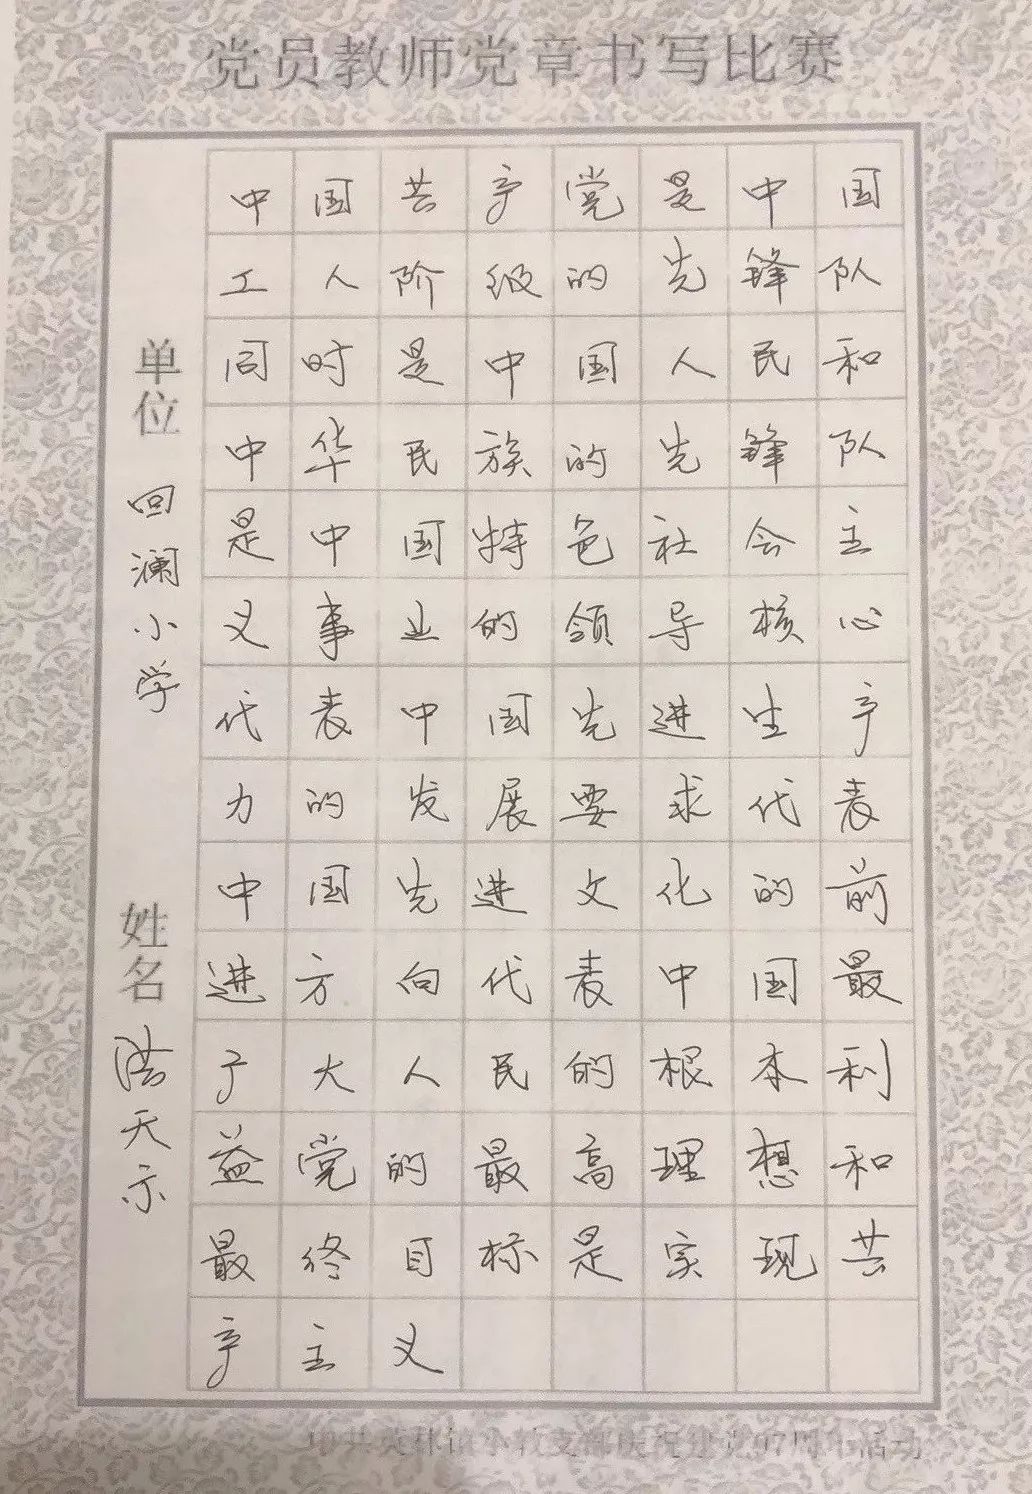 党员教师党章书写比赛
单位 回澜小学
姓名 洪天示
中国共产党是中国
工人阶级的先锋队
同时是中国人民和
中华民族的先锋队
是中国特色社会主
义事业的领导核心
代表中国先进生产
力的发展要求代表
中国先进文化的前
进方向代表中国最
广大人民的根本利
益党的最高理想和
最终目标是实现共
产主义
中共英林镇小教支部庆祝建党97周年活动